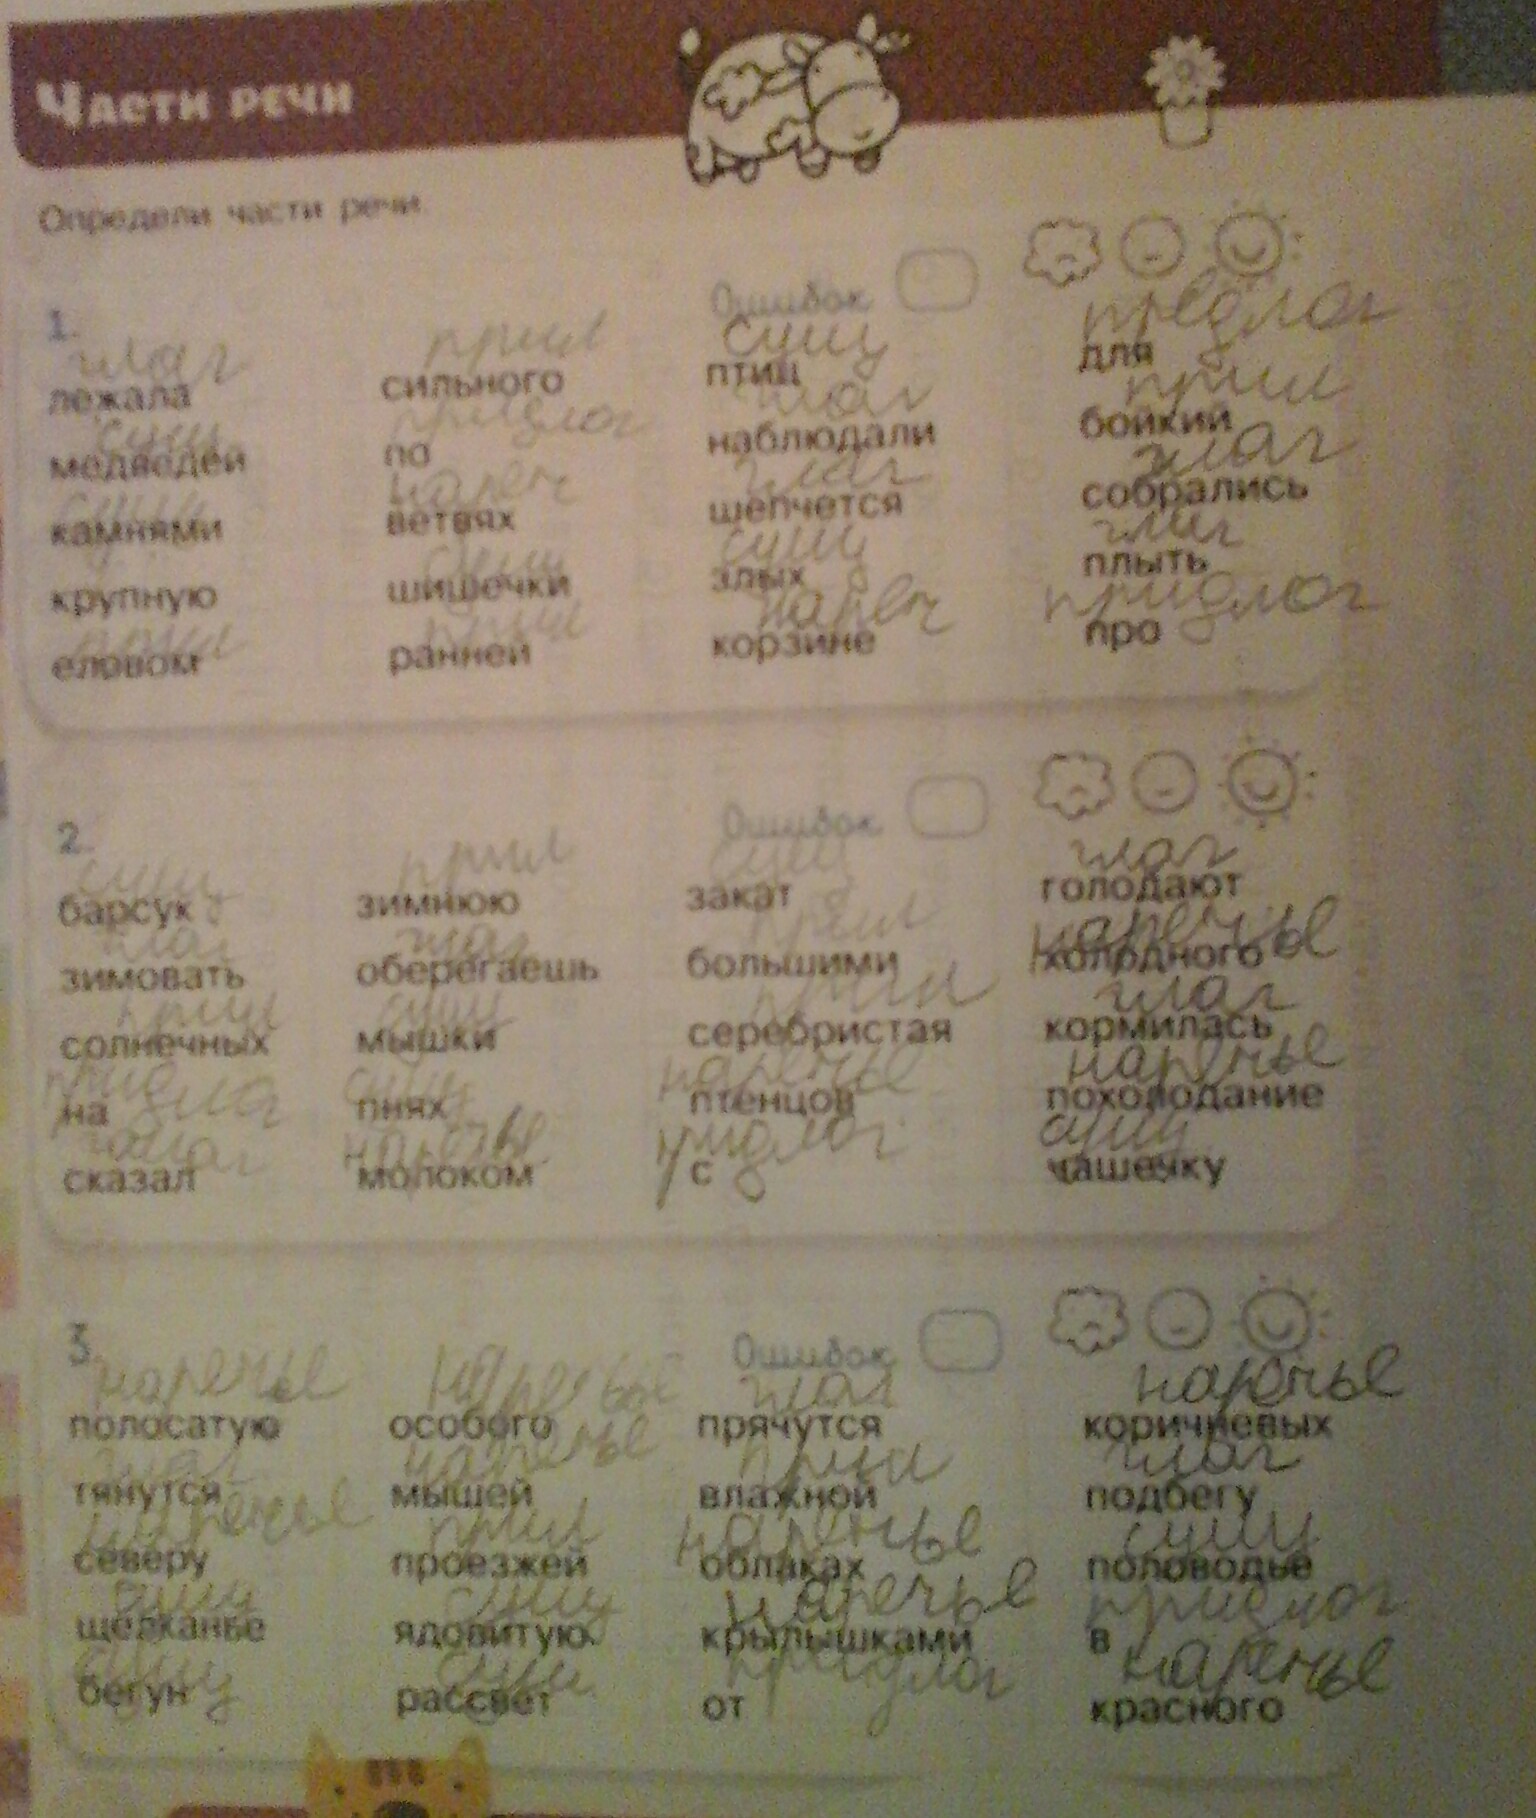 Части речи
Определи части речи.
1.
Ошибок
глаг прил сущ предлог
лежала сильного птиц для
сущ придлог глаг прил
медведей по наблюдали бойкий
сущ нареч глаг глаг
камнями ветвях шепчется собрались
сущ сущ глаг
крупную шишечки злых плыть
прил прил нареч придлог
еловом ранней корзине про
2.
Ошибок
сущ прил сущ глаг
барсук зимнюю закат голодают
глаг глаг прил наречье
зимовать оберегаешь большими холодного
прил сущ прил глаг
солнечных мышки серебристая кормилась
придлог сущ наречье наречье
на пнях птенцов похолодание
глаг наречье придлог сущ
сказал молоком с чашечку
3.
Ошибок
наречье наречье глаг наречье
полосатую особого прячутся коричневых
глаг наречье прил глаг
тянутся мышей влажной подбегу
наречье прил наречье сущ
северу проезжей облаках половодье
сущ сущ наречье придлог
щёлканье ядовитую крылышками в
сущ сущ придлог наречье
бегун рассвет от красного